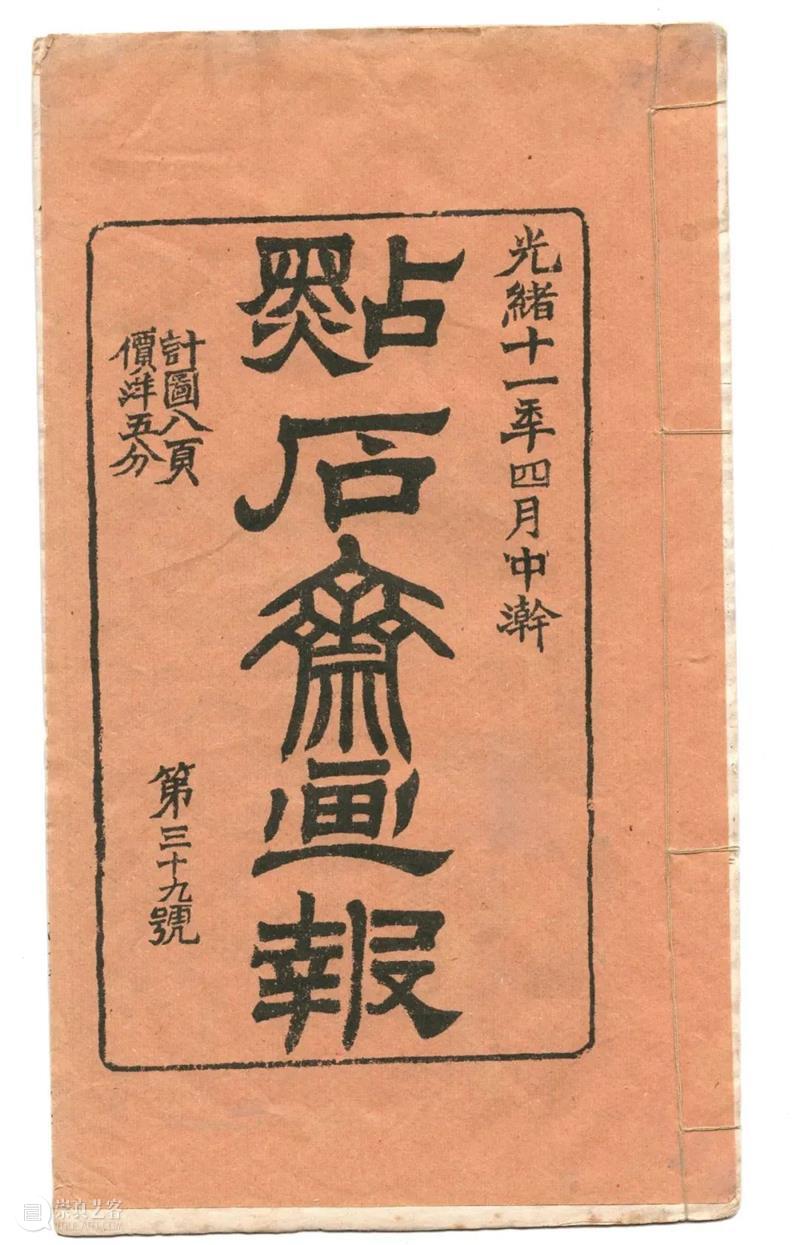 光緒十一年四月中澣
點石齋画報
計圖八頁
價洋五分
第三十九號
崇真艺客
TRUEART.COM